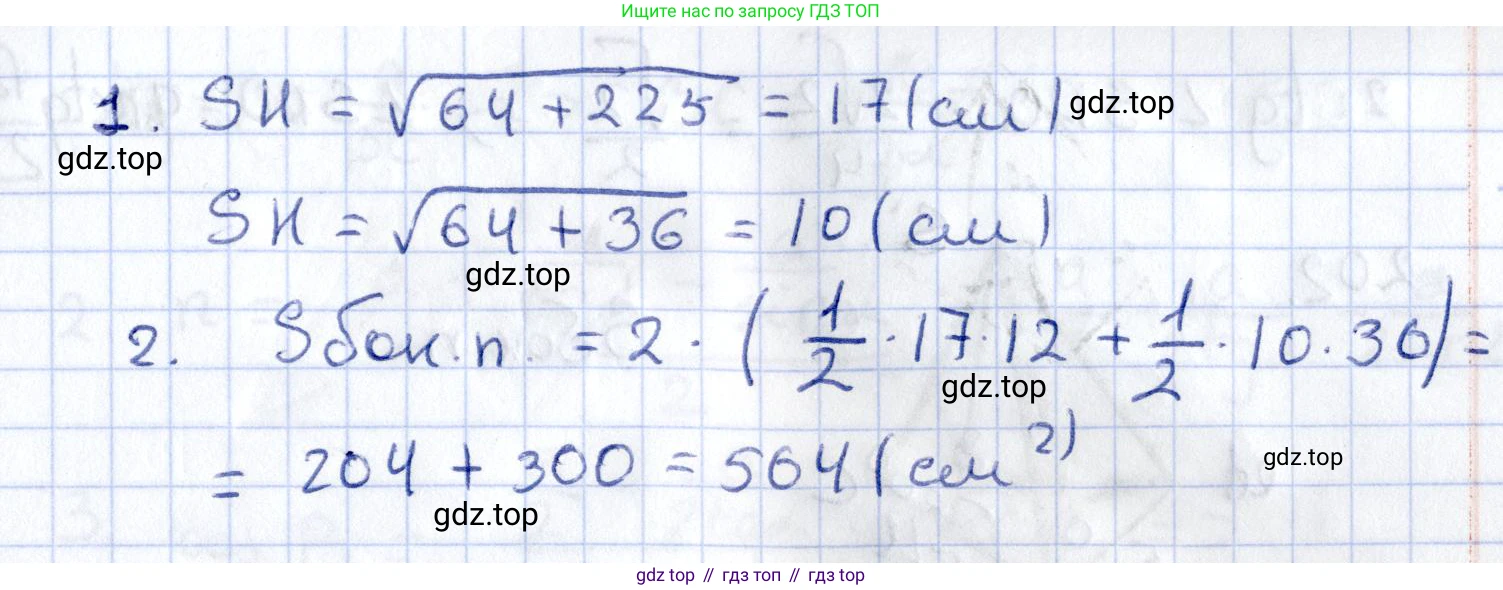 Ищите нас по запросу ГДЗ ТОП
1. SH = √64 + 225 = 17 (см) gdz.top
gdz.top
SK = √64 + 36 = 10 (см)
gdz.top
2. Sбок.п. = 2 · (1/2 · 17 · 12 + 1/2 · 10 · 36) =
gdz.top
= 204 + 360 = 564 (см²)
gdz.top
gdz.top
gdz top // гдз топ // гдз top